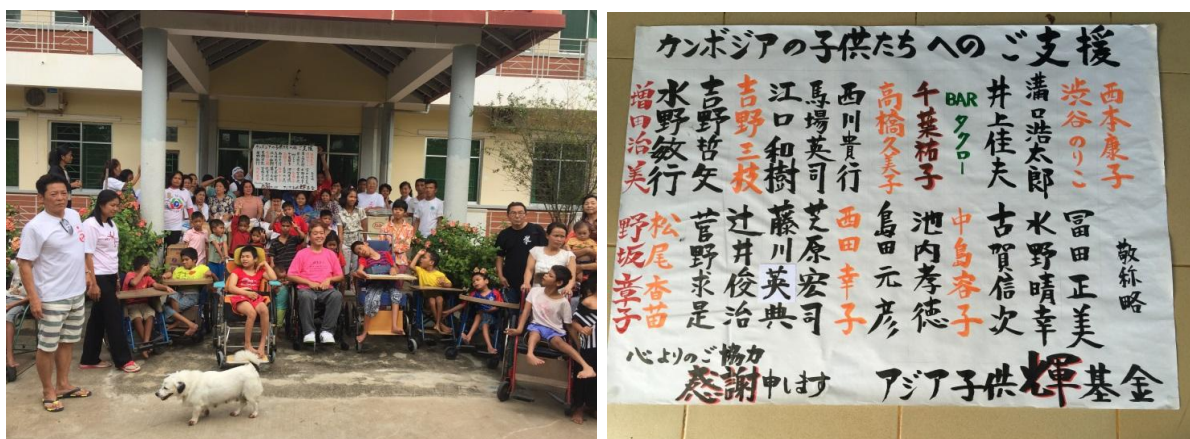 カンボジアの子供たちへのご支援
西本康子
渋谷のりこ
溝口浩太郎
井上佳夫
BARタクロー
千葉祐子
高橋久美子
西川貴行
馬場英司
江口和樹
吉野三枝
吉野哲矢
水野敏行
増田治美
敬称略
冨田正美
水野晴幸
古賀信次
中島容子
池内孝徳
島田元彦
西田幸子
芝原宏司
藤川英典
辻井俊治
菅野
松尾香苗
野坂章子
心よりのご協力
感謝申します
アジア子供輝基金